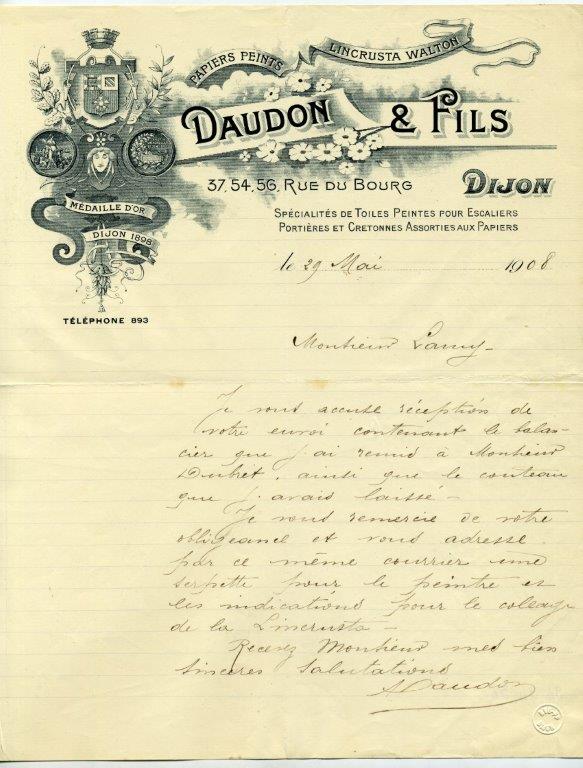 PAPIERS PEINTS
LINCRUSTA WALTON
DAUDON & FILS
37, 54, 56, RUE DU BOURG
DIJON
SPÉCIALITÉS DE TOILES PEINTES POUR ESCALIERS
PORTIÈRES ET CRETONNES ASSORTIES AUX PAPIERS
MÉDAILLE D'OR
DIJON 1898
TÉLÉPHONE 893
le 29 Mai 1908
Monsieur Lamy-
Je vous accuse réception de
votre envoi contenant le balan-
cier que j'ai remis à Monsieur
Dubret, ainsi que le couteau
que j'avais laissé-
Je vous remercie de votre
obligeance et vous adresse
par ce même courrier une
serpette pour le peintre et
les indications pour le collage
de la Lincrusta-
Recevez Monsieur mes bien
sincères salutations
A Daudon